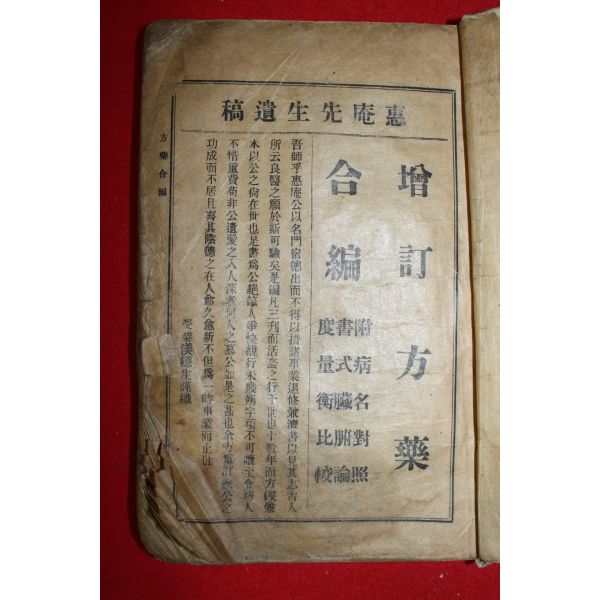 惠庵先生遺稿
增訂方藥
合編
附病名對照
書式臟腑論
度量衡比較
吾師乎惠庵公以名門宿德出而不得以措諸事業退修兼濟書以見其志古人
所云良醫之願於斯可驗矣是編凡三刊而活套之行于世也十數年而方
本以公之尙在世也是書爲公絶筆人爭快覩行未幾
不惜重費苟非公遺愛之入人深者何人之慕公如是之甚也余方
功成而不居且壽其陰德之在人愈久愈新不但爲一時事業而止也
受業漢隱生謹識
方藥合編